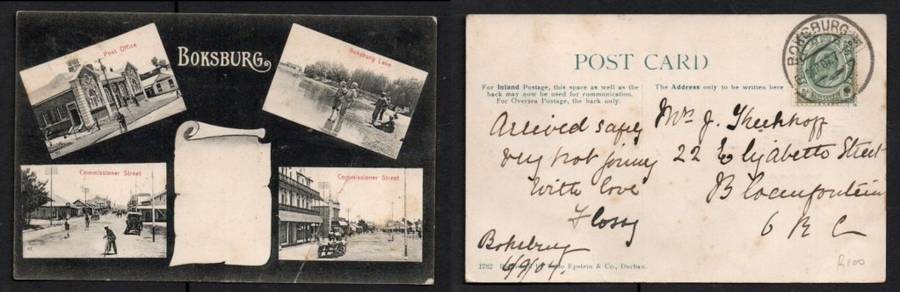 Post Office
BOKSBURG
Boksburg Lake
Commissioner Street
Commissioner Street
BOKSBURG
POST CARD
For Inland Postage, this space as well as the
back may now be used for communication.
For Oversea Postage, the back only.
The Address only to be written here
Arrived safely
very hot
With love
Flossy
Boksburg
Mrs J.
22 Elizabeth Street
Bloemfontein
O R C
1782
Epstein & Co., Durban.
R100